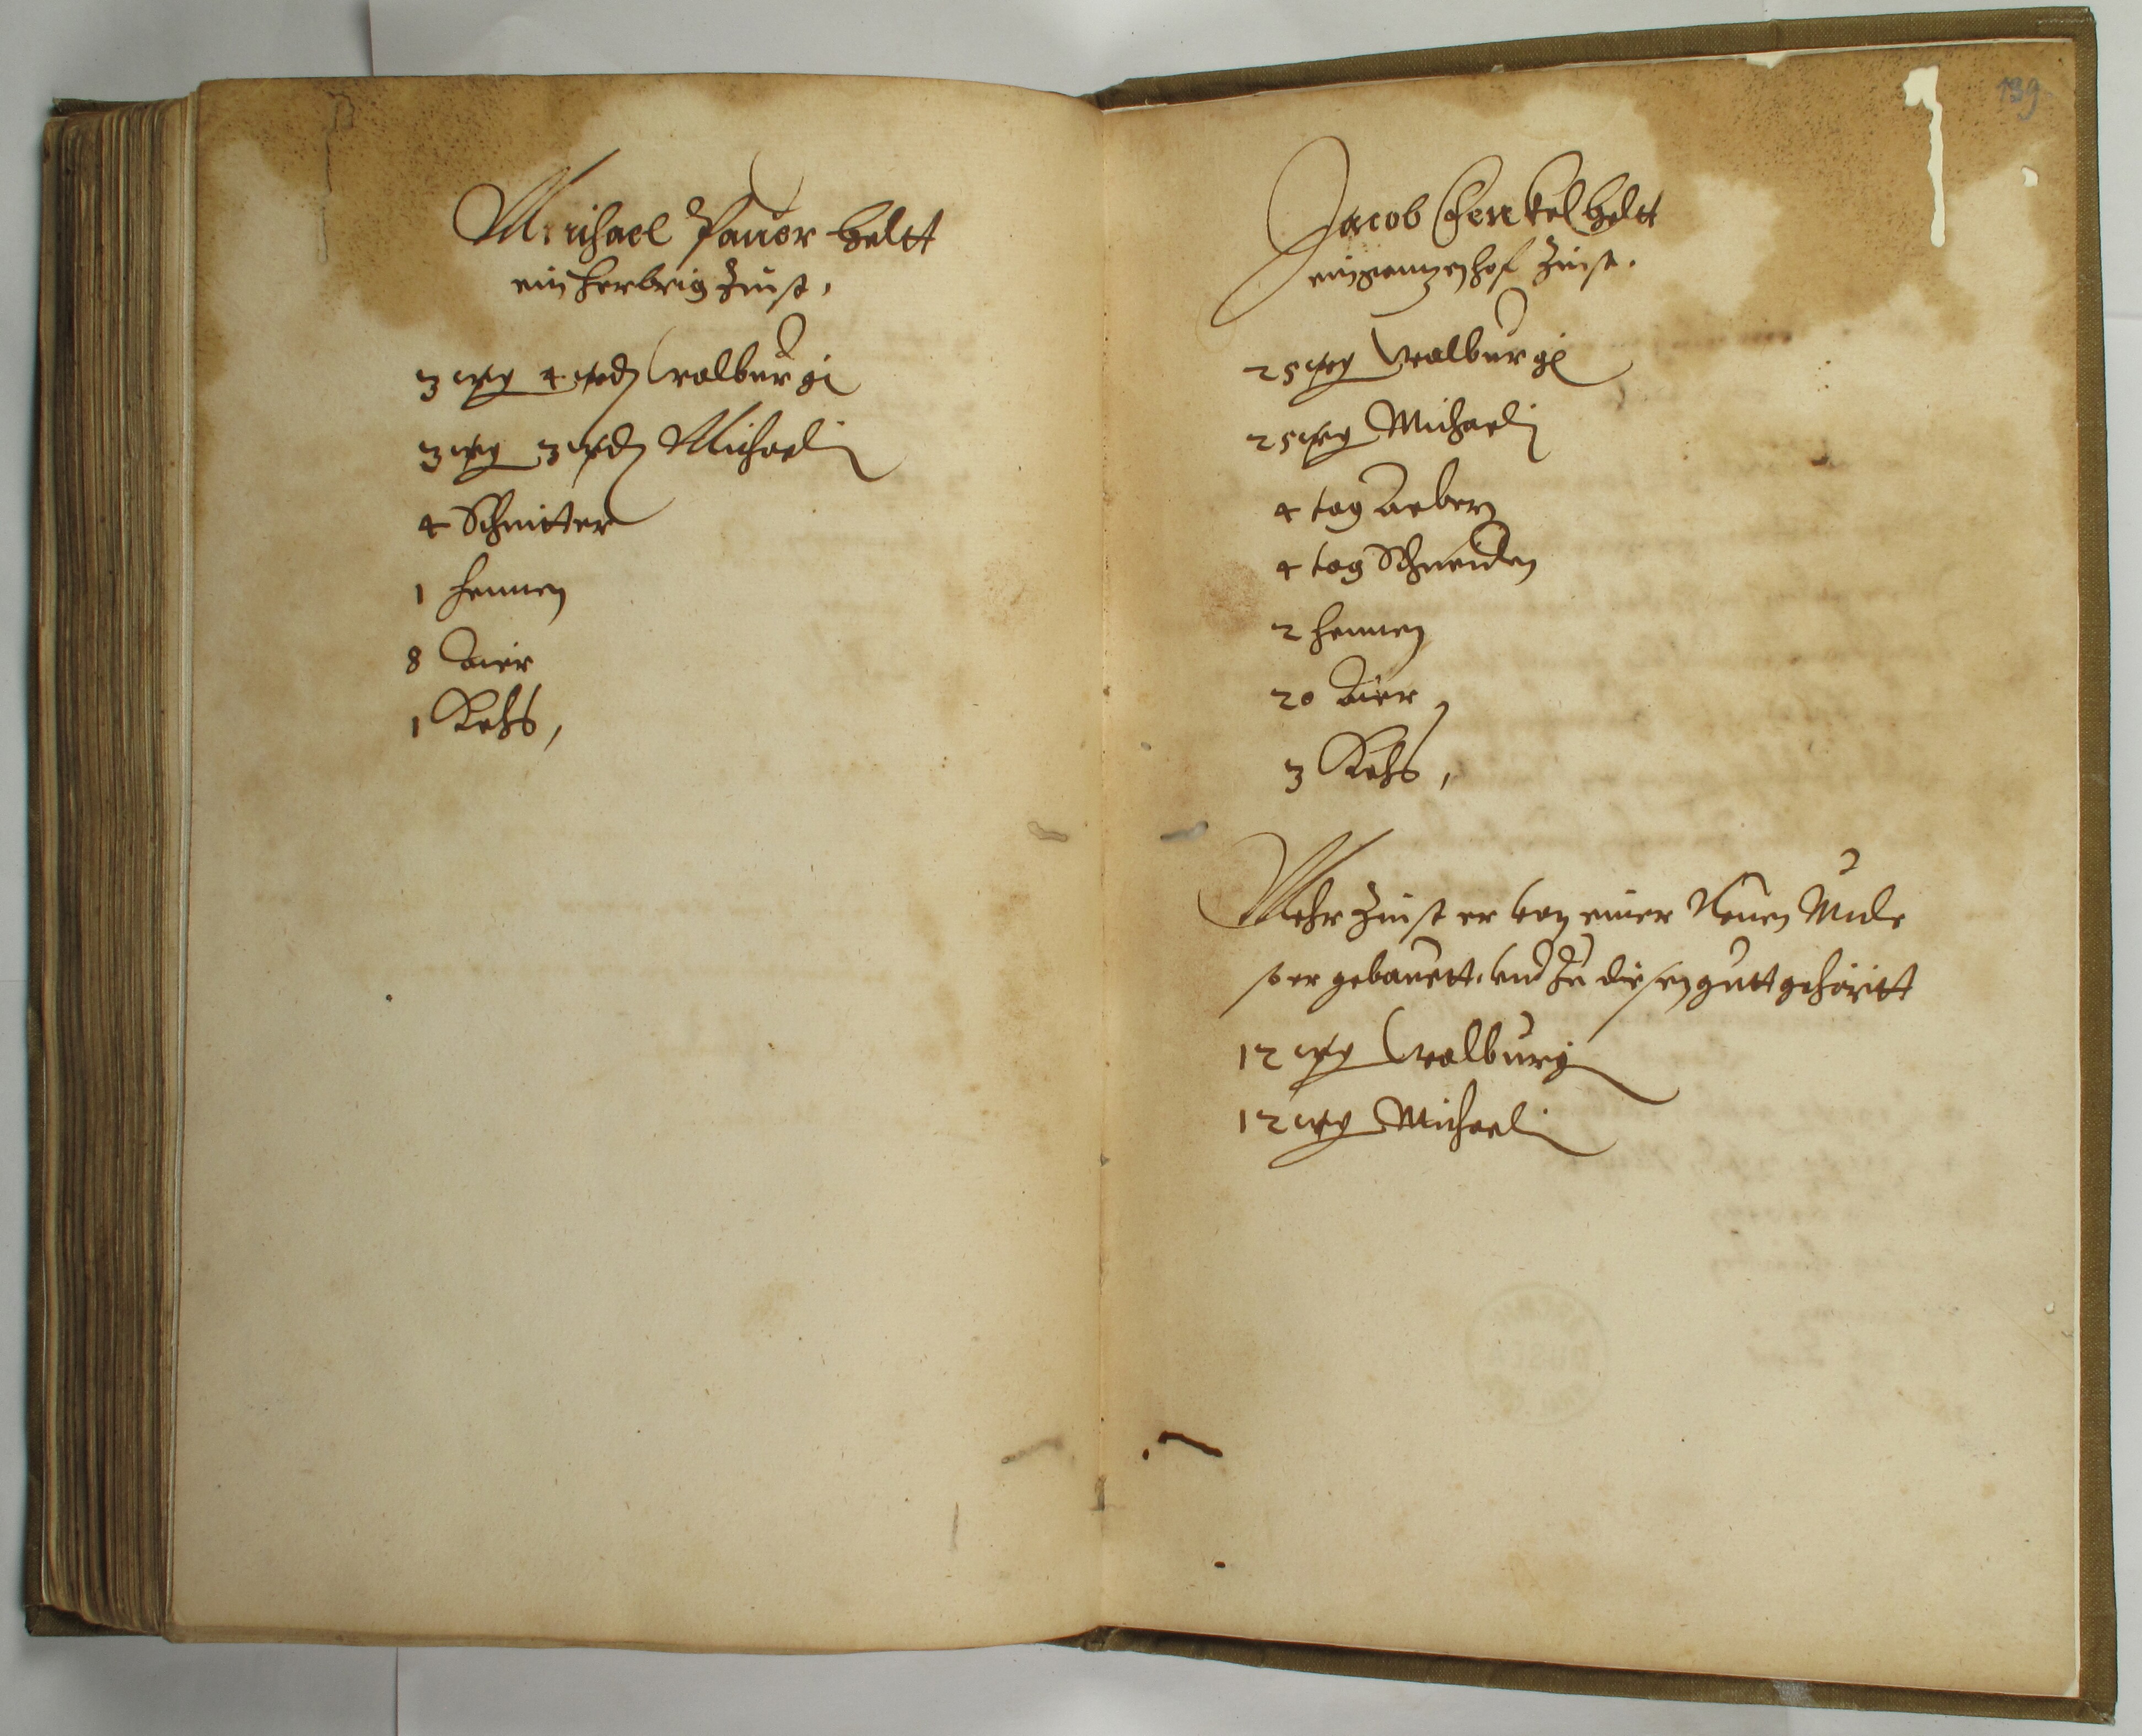 Michael Pauer helt
ein herbrig Zinst,
3 wg 4 wd Walburgi
3 wg 3 wd Michaeli
4 Schnitter
1 hennen
8 Aier
1 Kehs,
139
Jacob helt
ein ganzen hof Zinst.
25 wg Walburgi
25 wg Michaeli
4 tag
4 tag Schneiden
2 hennen
20 Aier
3 Kehs,
Mehr Zinst er von einer Neuen Mule
so er gebauett, vnd Zu diesen gutt gehöritt
12 wg Walburgi
12 wg Michaeli